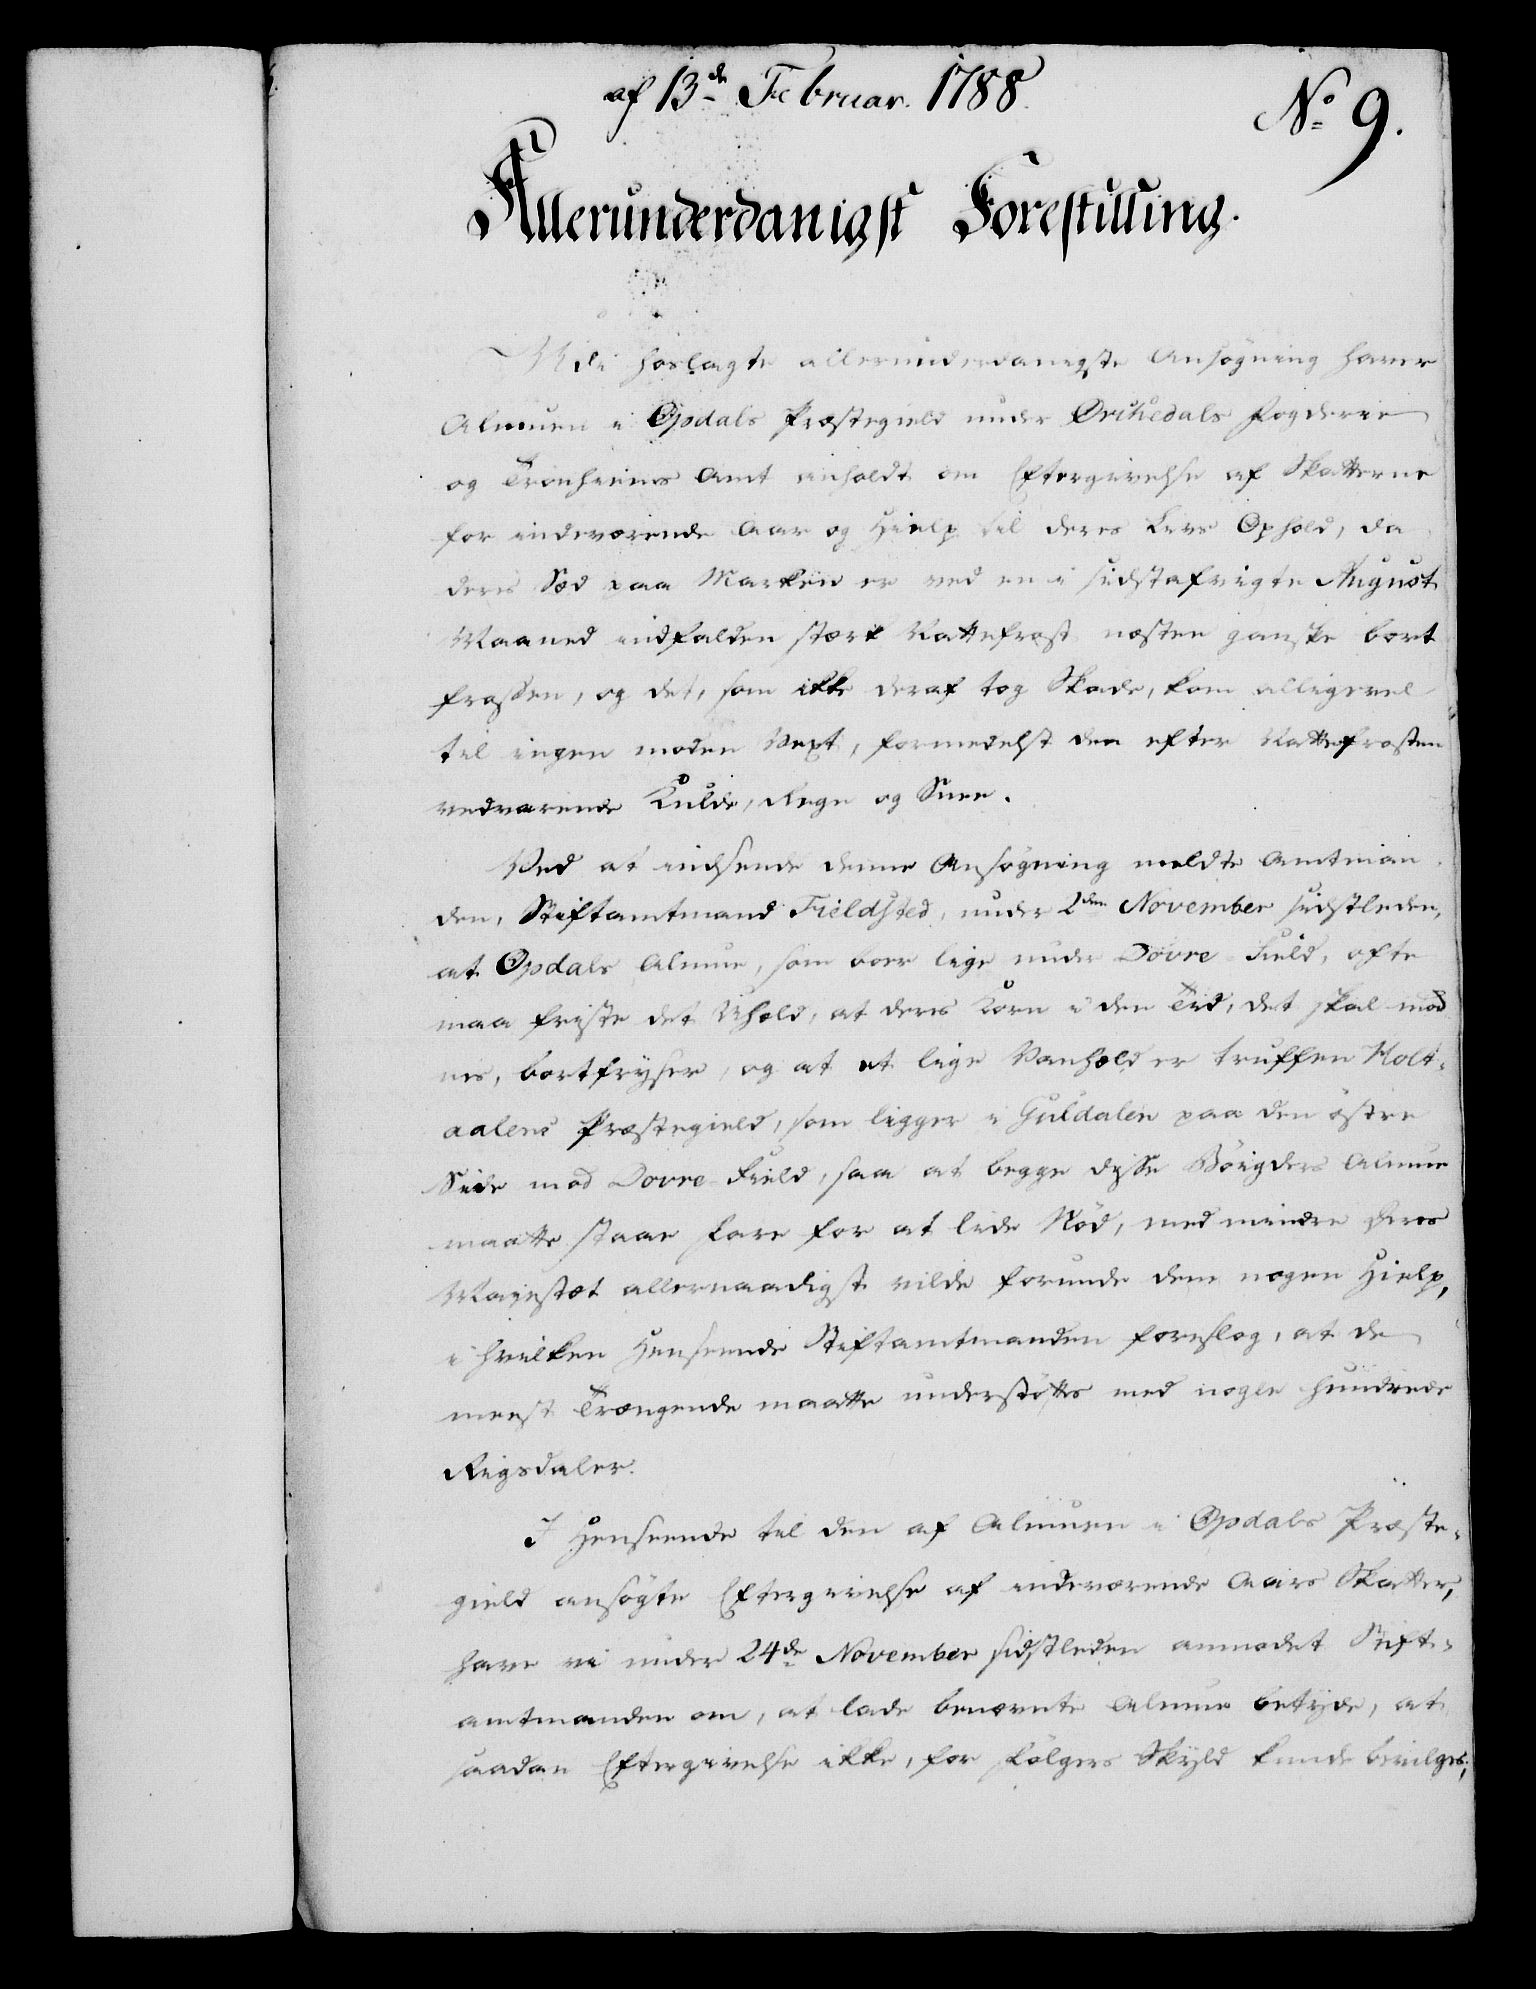 af 13de Februar. 1788.
No 9.
Allerunderdanigst Forestilling.
Udi hoslagte allerunderdanigste Ansøgning haver
Almuen i Opdals Præstegield under Orchedals Fogderie
og Tronhiems Amt anholdt om Eftergivelse af Skatterne
for indeværende Aar og Hielp til deres Livs Ophold, da
deres Sæd paa Marken er ved en i sidstafvigte August
Maaned indfalden stærk Nattefrost næsten ganske bort
frossen, og det, som ikke deraf tog Skade, kom alligevel
til ingen moden Vext, formedelst den efter Nattefrosten
vedvarende Kulde, Regn og Snee.
Ved at indsende denne Ansøgning meldte Amtman
den, Stiftamtmand Fieldsted, under 2den November sidstleden,
at Opdals Almue, som boer lige under Dovre-Field, ofte
maa friste det Uheld, at deres Korn i den Tid, det skal mod
nes, bortfryser, og at et lige Vanheld er truffen Holt-
aalens Præstegield, som ligger i Guldalen paa den östre
Side mod Dovre-Field, saa at begge disse Böigders Almue
maatte staae Fare for at lide Nöd, med mindre Deres
Majestæt allernaadigst vilde forunde dem nogen Hielp,
i hvilken Henseende Stiftamtmanden foreslog, at de
meest Trængende maatte understöttes med nogle hundrede
Rigsdaler.
I Henseende til den af Almuen i Opdals Præste-
gield ansögte Eftergivelse af indeværende Aars Skatter,
have vi under 24de November sidstleden anmodet Stift-
amtmanden om, at lade benævnte Almue betyde, at
saadan Eftergivelse ikke, for Fölgers Skyld kunde bevilges;